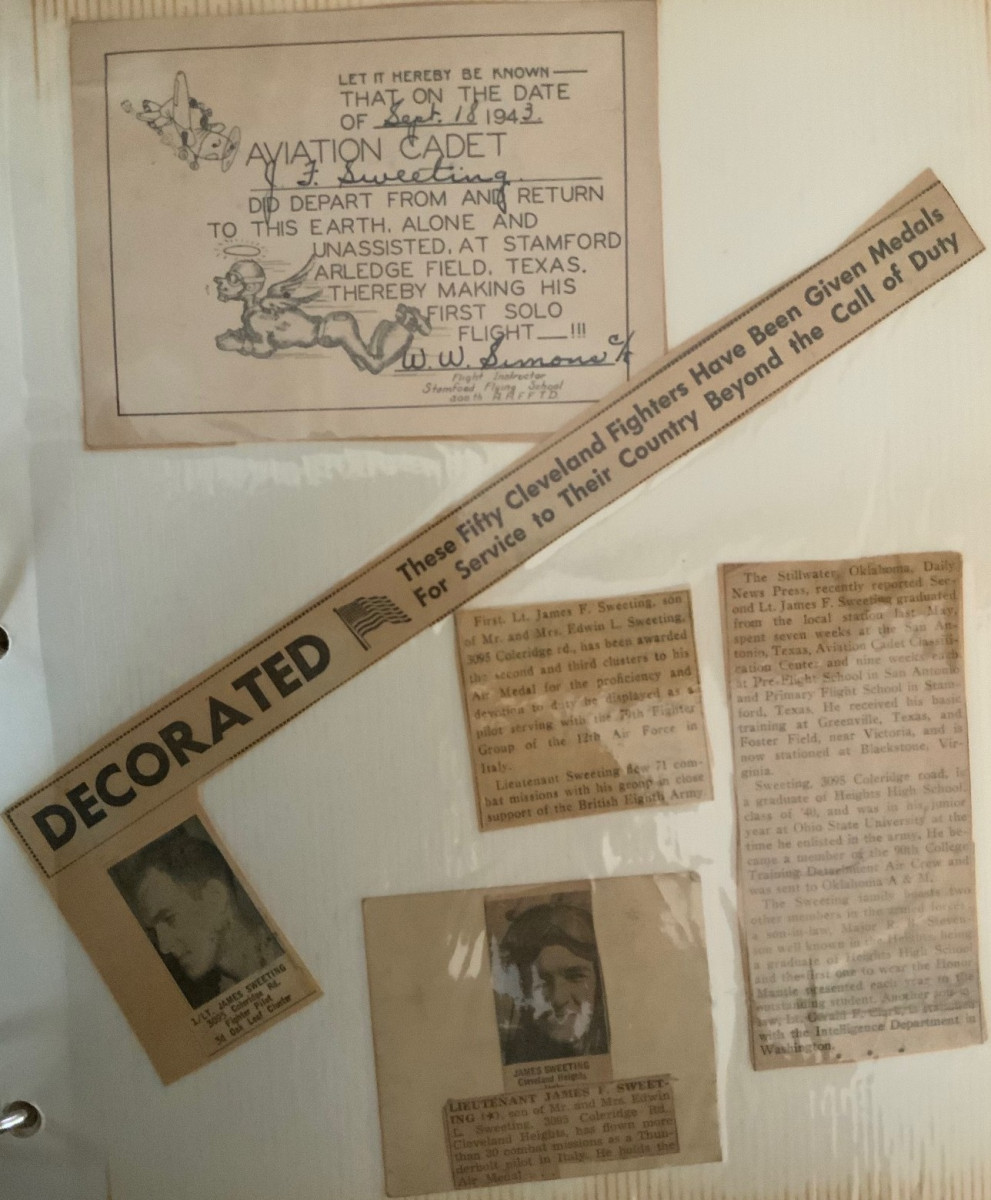 LET IT HEREBY BE KNOWN —
THAT ON THE DATE
OF Sept. 18 1943.
AVIATION CADET
J. F. Sweeting
DID DEPART FROM AND RETURN
TO THIS EARTH, ALONE AND
UNASSISTED, AT STAMFORD
ARLEDGE FIELD, TEXAS.
THEREBY MAKING HIS
FIRST SOLO
FLIGHT —!!!
W. W. Simons
Flight Instructor
Stamford Flying School
DECORATED
These Fifty Cleveland Fighters Have Been Given Medals
For Service to Their Country Beyond the Call of Duty
1/LT. JAMES SWEETING
3095 Coleridge Rd.
Fighter Pilot
3d Oak Leaf Cluster
First Lt. James F. Sweeting, son
of Mr. and Mrs. Edwin L. Sweeting,
3095 Coleridge rd., has been awarded
the second and third clusters to his
Air Medal for the proficiency and
devotion to duty he displayed as a
pilot serving with the 79th Fighter
Group of the 12th Air Force in
Italy.
Lieutenant Sweeting flew 71 com-
bat missions with his group in close
support of the British Eighth Army.
JAMES SWEETING
Cleveland Heights
LIEUTENANT JAMES F. SWEET-
ING son of Mr. and Mrs. Edwin
L. Sweeting, 3095 Coleridge Rd.,
Cleveland Heights, has flown more
than 20 combat missions as a Thun-
derbolt pilot in Italy. He holds the
Air Medal.
The Stillwater, Oklahoma, Daily
News Press, recently reported Sec-
ond Lt. James F. Sweeting graduated
from the local station last May,
spent seven weeks at the San An-
tonio, Texas, Aviation Cadet Classifi-
cation Center and nine weeks each
at Pre-Flight School in San Antonio
and Primary Flight School in Stam-
ford, Texas. He received his basic
training at Greenville, Texas, and
Foster Field, near Victoria, and is
now stationed at Blackstone, Vir-
ginia.
Sweeting, 3095 Coleridge road, is
a graduate of Heights High School,
class of '40, and was in his junior
year at Ohio State University at the
time he enlisted in the army. He be-
came a member of the 90th College
Training Department Air Crew and
was sent to Oklahoma A & M.
The Sweeting family boasts two
other members in the armed forces,
a son-in-law, Major R. Steven-
son well known in the Heights, being
a graduate of Heights High School
and the first one to wear the Honor
Mantle presented each year to the
outstanding student. Another son-in-
law, Lt. Gerald F. Clark, is stationed
with the Intelligence Department in
Washington.